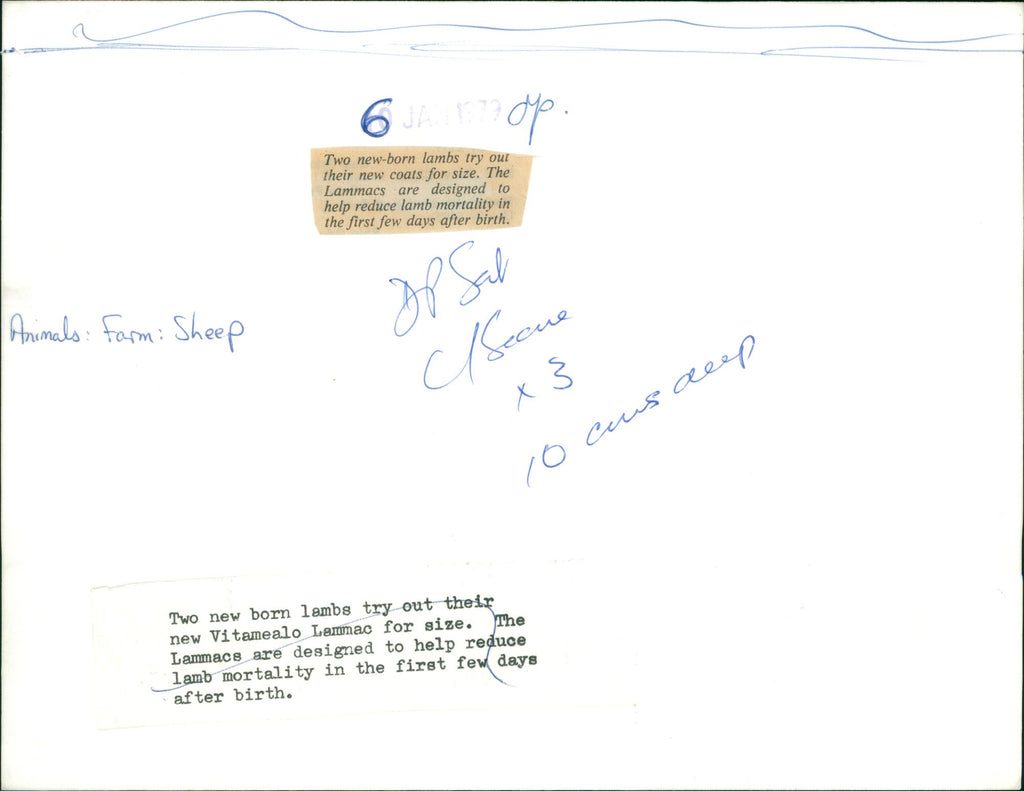 6 JAN 1979 dp.
Two new-born lambs try out
their new coats for size. The
Lammacs are designed to
help reduce lamb mortality in
the first few days after birth.
DP Sat
Animals: Farm: Sheep
x 3
10 cms deep
Two new born lambs try out their
new Vitamealo Lammac for size. The
Lammacs are designed to help reduce
lamb mortality in the first few days
after birth.